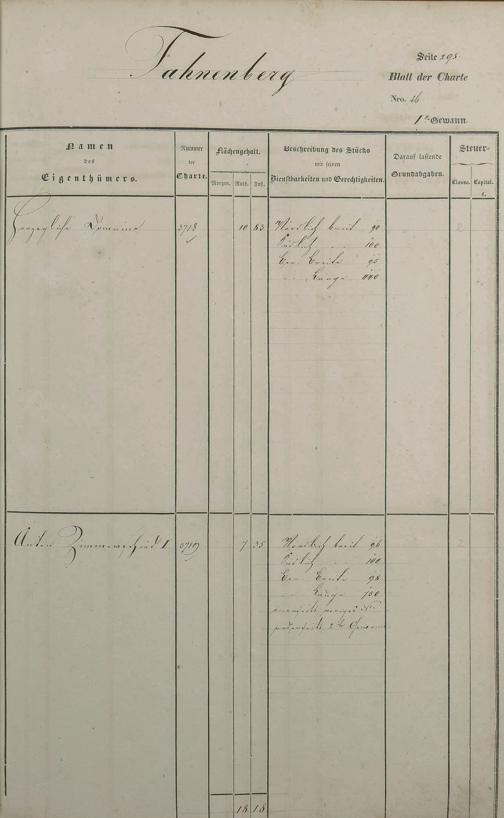 Fahnenberg
Seite 295
Blatt der Charte
Nro. 46
1te Gewann.
Namen des Eigenthümers.
Nummer der Charte.
Flächengehalt.
Morgen. Ruth. Fuß.
Beschreibung des Stücks mit seinen Dienstbarkeiten und Gerechtigkeiten.
Darauf lastende Grundabgaben.
Steuer-
Classe. Capital.
Herzogliche Domaine 3718 10 83 Nördlich breit 90
Südlich 100
Ger. Breite 95
Länge
Anton Zimmerschied 1 3719 7 35 Nördlich breit 96
Südlich 100
Ger. Breite 98
Länge 750
2te Gewann
18 18